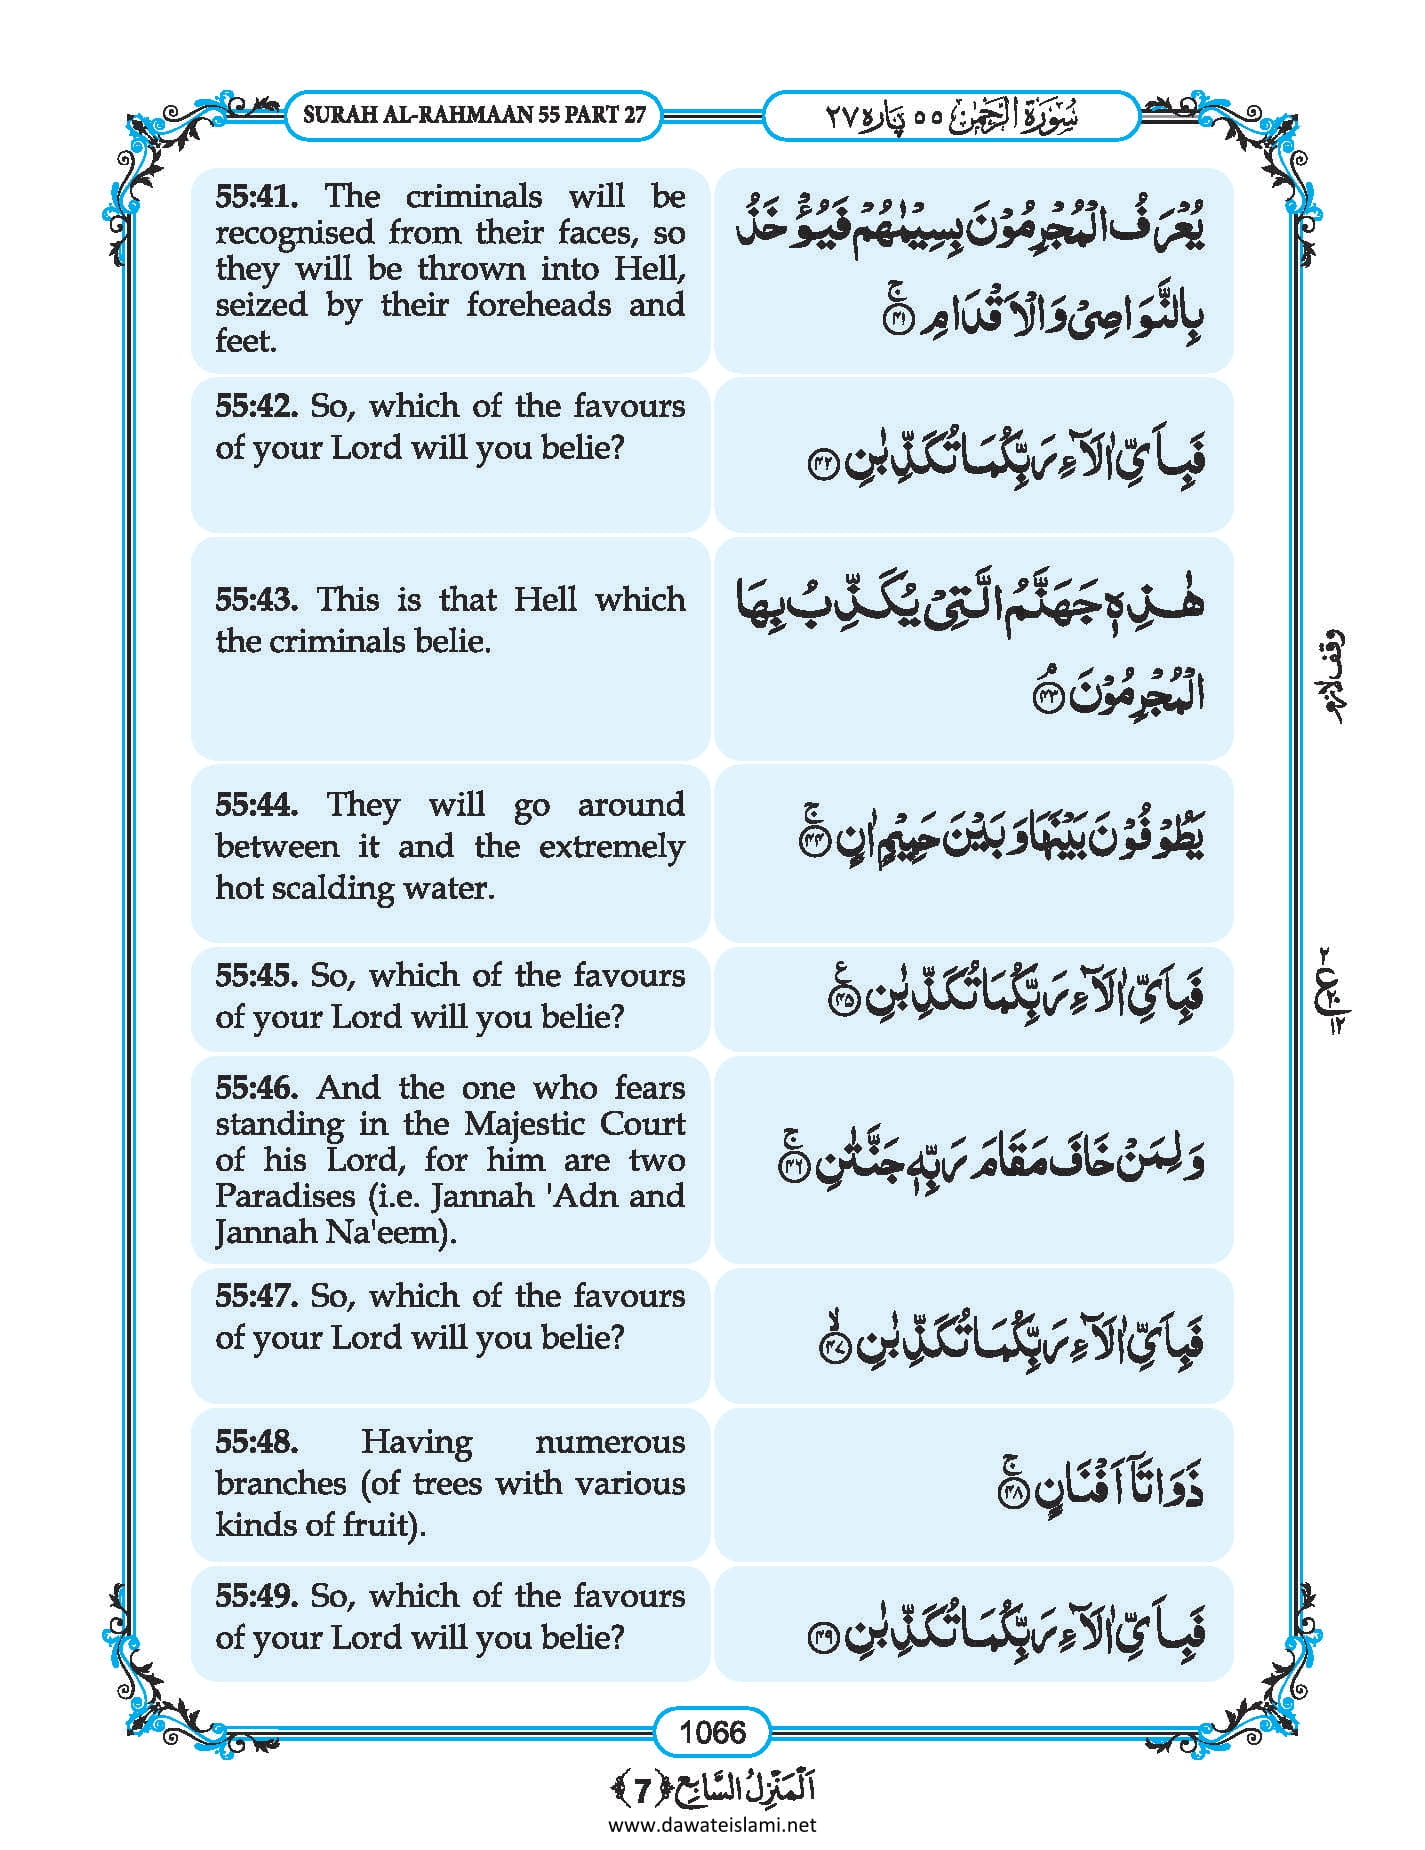 SURAH AL-RAHMAAN 55 PART 27
سُوْرَةُ الرَّحْمٰن ٥٥ پَارہ ٢٧
55:41. The criminals will be
recognised from their faces, so
they will be thrown into Hell,
seized by their foreheads and
feet.
يُعْرَفُ الْمُجْرِمُوْنَ بِسِيْمٰىهُمْ فَيُؤْخَذُ
بِالنَّوَاصِيْ وَالْاَقْدَامِ ۚ ﴿٤١﴾
55:42. So, which of the favours
of your Lord will you belie?
فَبِاَيِّ اٰلَآءِ رَبِّكُمَا تُكَذِّبٰنِ ﴿٤٢﴾
55:43. This is that Hell which
the criminals belie.
هٰذِهٖ جَهَنَّمُ الَّتِيْ يُكَذِّبُ بِهَا
الْمُجْرِمُوْنَ ۘ ﴿٤٣﴾
وقف لازم
55:44. They will go around
between it and the extremely
hot scalding water.
يَطُوْفُوْنَ بَيْنَهَا وَ بَيْنَ حَمِيْمٍ اٰنٍ ۚ ﴿٤٤﴾
55:45. So, which of the favours
of your Lord will you belie?
فَبِاَيِّ اٰلَآءِ رَبِّكُمَا تُكَذِّبٰنِ ﴿٤٥﴾ ع
٢
ع
٢٠
١٢
55:46. And the one who fears
standing in the Majestic Court
of his Lord, for him are two
Paradises (i.e. Jannah 'Adn and
Jannah Na'eem).
وَ لِمَنْ خَافَ مَقَامَ رَبِّهٖ جَنَّتٰنِ ۚ ﴿٤٦﴾
55:47. So, which of the favours
of your Lord will you belie?
فَبِاَيِّ اٰلَآءِ رَبِّكُمَا تُكَذِّبٰنِ ۙ ﴿٤٧﴾
55:48. Having numerous
branches (of trees with various
kinds of fruit).
ذَوَاتَاۤ اَفْنَانٍ ۚ ﴿٤٨﴾
55:49. So, which of the favours
of your Lord will you belie?
فَبِاَيِّ اٰلَآءِ رَبِّكُمَا تُكَذِّبٰنِ ﴿٤٩﴾
1066
اَلْمَنْزِلُ السَّابِع ﴿7﴾
www.dawateislami.net